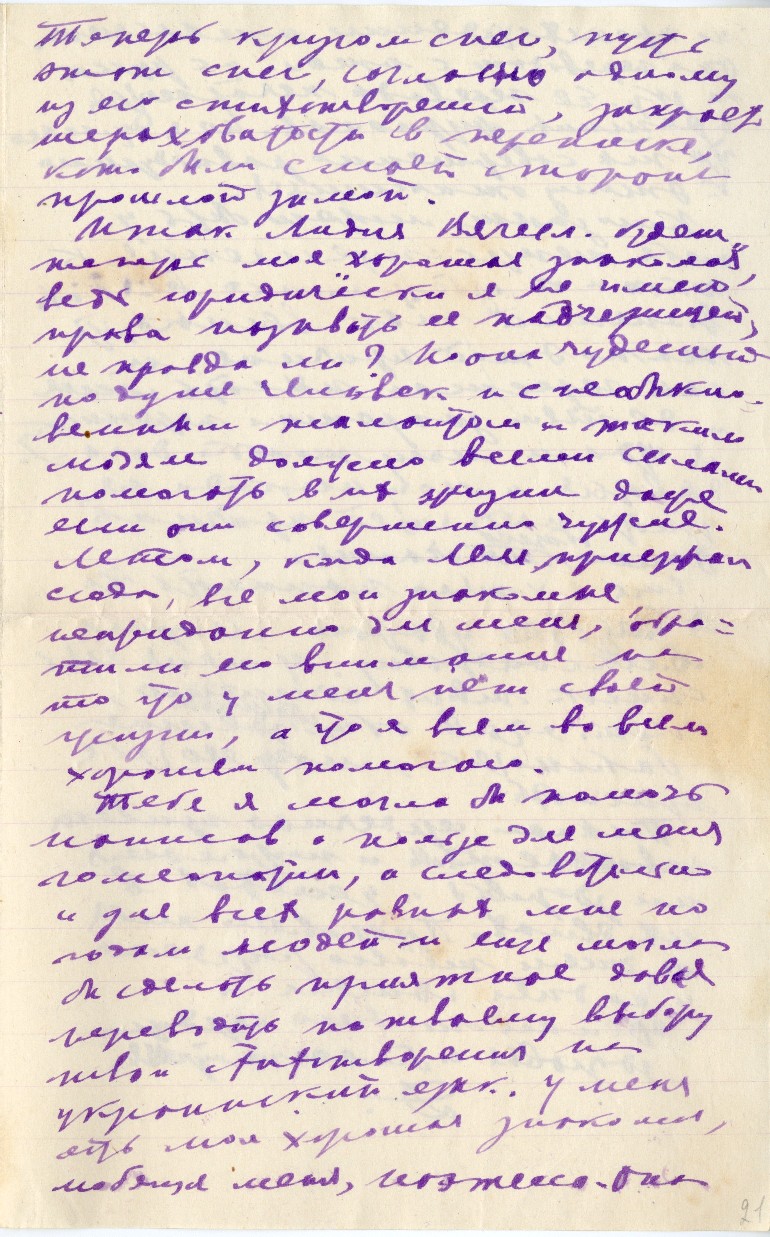 Теперь кругом снег, пусть
этот снег, согласно одному
из его стихотворений, закроет
шероховатости в переписке,
кот. были с моей стороны
прошлой зимой.
Итак Лидия Вячесл. будет
теперь "моя хорошая знакомая",
ведь юридически я не имею
права называть ее падчерицей,
не правда ли? Но она чудесный
по душе человек и с необыкно-
венным талантом и таким
людям должно всеми силами
помогать в их жизни даже
если они совершенно чужие.
Летом, когда приезжал
сюда, все мои знакомые
неожиданно для меня, обра=
тили его внимание на
то что у меня нет своей
жизни, а что я всем во всем
хорошем помогаю.
Тебе я могла бы помочь
написав о пользе для меня
гомеопатии, а следовательно
и для всех равных мне по
годам людей и еще могла
бы сделать приятное давая
переводить по твоему выбору
твои стихотворения на
украинский язык. У меня
есть моя хорошая знакомая,
любящая меня, поэтесса. Она
21